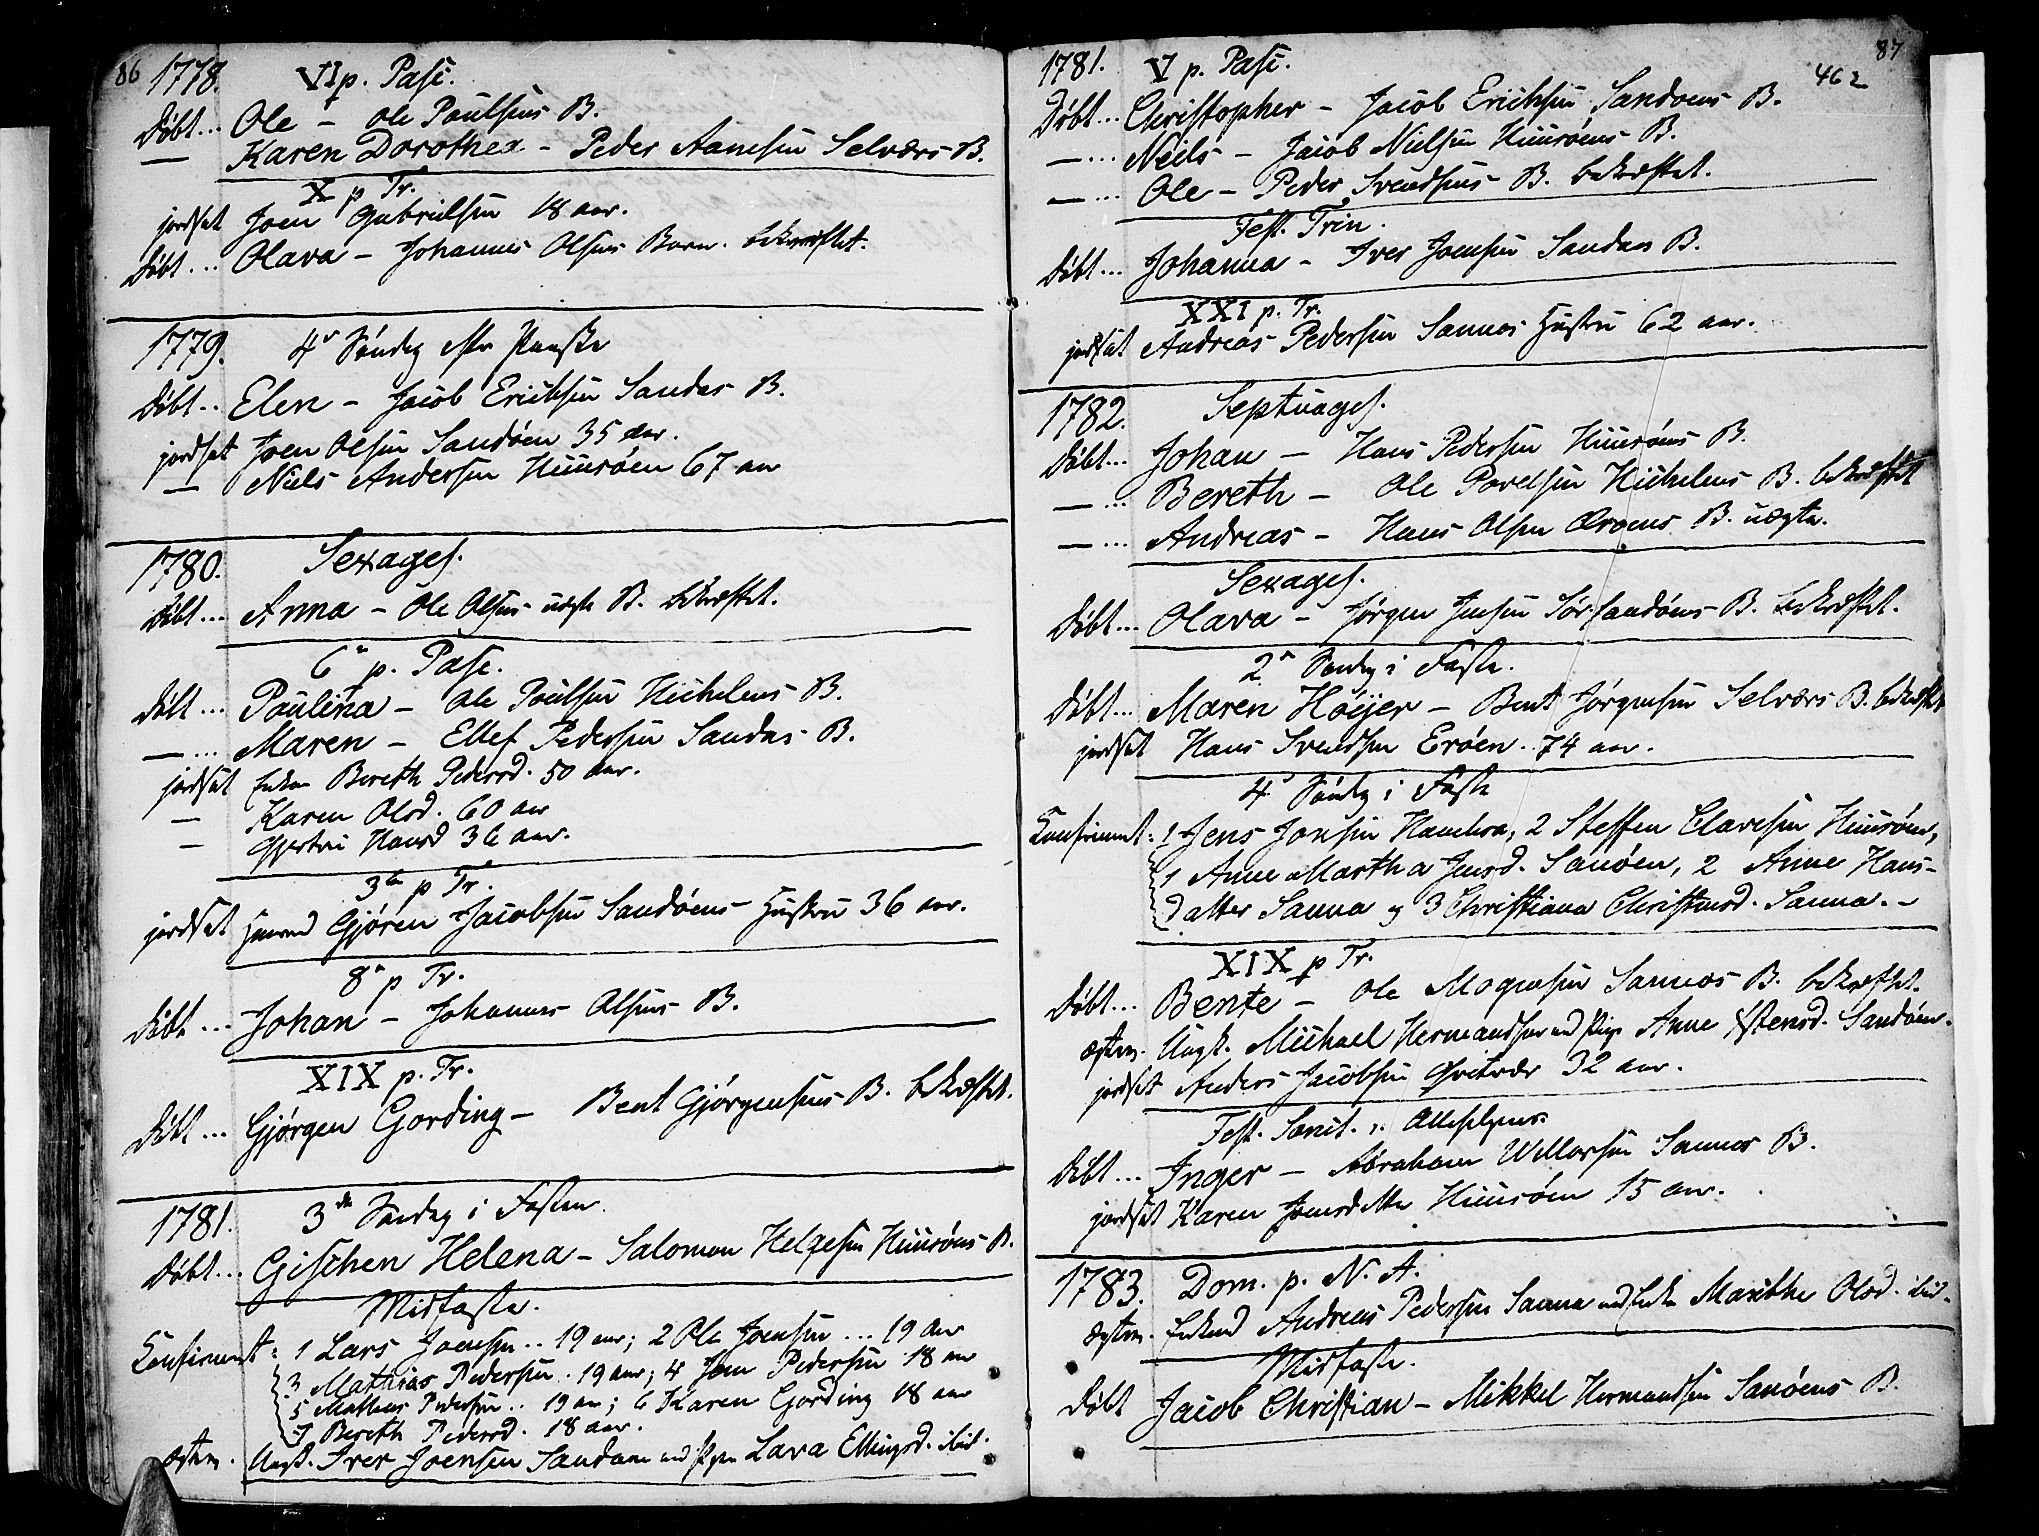 86
1778. VI p. Pasc.
Døbt... Ole - Ole Poulsens B.
— Karen Dorothea - Peder Aanesen Selværs B.
X p Tr.
jordsat Joen Gabrielsen 18 aar.
Døbt... Olava - Johannes Olsens Barn. bekræftet.
1779. 4de Søndag efter Paaske
Døbt.. Elen - Jacob Erichsen Sandøs B.
jordsat Joen Olsen Sandøen 35 aar.
— Niels Andersen Huusøen 67 aar
1780. Sexages.
Døbt... Anna - Ole Olsens uægte B. bekræftet.
6te p. Pasc.
Døbt... Paulina - Ole Poulsen Hichelens B.
— ... Maren - Ellef Pedersen Sandøs B.
jordsat Enken Bereth Pedersd. 50 aar.
— Karen Olsd. 60 aar
— Gjertru Hansd 36 aar.
3die p Tr.
jordsat Gjøren Jacobsen Sandøens Hustru 36 aar.
8de p Tr.
Døbt... Johan - Johannes Olsens B.
XIX p. Tr.
Døbt... Gjørgen Gording - Bent Gjørgensens B. bekræftet.
1781. 3de Søndag i Fasten.
Døbt... Gischen Helena - Salomon Helgesen Huusøens B.
Midfaste.
Confirmert: 1 Lars Joensen .. 19 aar; 2 Ole Joensen ... 19 Aar
3 Mathias Pedersen .. 19 aar; 4 Joen Pedersen 18 aar
5 Matheus Pedersen .. 19 aar; 6 Karen Gording 18 aar
7 Bereth Pedersd. 18 aar.
Ægtev. Ungk. Iver Joensen Sandøen med Pigen Lava Ellingsd. ibid.
87
462
1781. V p. Pasc.
Døbt... Christopher - Jacob Erichsen Sandøens B.
— ... Neils - Jacob Nielsen Huusøens B.
— ... Ole - Peder Svendsens B. bekræftet.
Fest. Trin.
Døbt... Johanna - Iver Joensen Sandøs B.
XXI p. Tr.
jordsat Andreas Pedersen Sannøs Hustru 62 aar.
1782. Septuages.
Døbt... Johan - Hans Pedersen Huusøens B.
— ... Bereth - Ole Povelsen Hichelens B. bekræftet
— ... Andreas - Hans Olsen B. uægte.
Sexages.
Døbt... Olava - Jørgen Jensen Sørsandøens B. bekræftet.
2den Søndag i Faste.
Døbt... Maren Höyer - Bent Jørgensen Selværs B. bekræftet
jordsat Hans Svendsen Erøen. 74 aar.
4de Søndag i Faste
Confirmert: 1 Jens Jonsen, 2 Steffen Clavesen Huusøen,
1 Anne Martha Jensd. Sanøen, 2 Anne Hans-
datter Sanna og 3 Christiana Christensd. Sanna. -
XIX p Tr.
Døbt... Bente - Ole Mogensen Sannøs B. bekræftet.
Ægtev. Ungk. Michael Hermandsen med Pige Anne Estensd. Sandøen.
jordsat Anders Jacobsen Qvitvær 32 aar.
Fest. Sanct. Allehelgens
Døbt... Inger - Abraham Willarsen Sannøs B.
jordsat Karen Joensdatter Huusøen 15 aar.
1783. Dom. p. N. A.
Ægtev. Enkemand Andreas Pedersen Sanna med Enke Marithe Olsd. ibid.
Midfaste.
Døbt Jacob Christian - Mikkel Hermandsen Sanøens B.